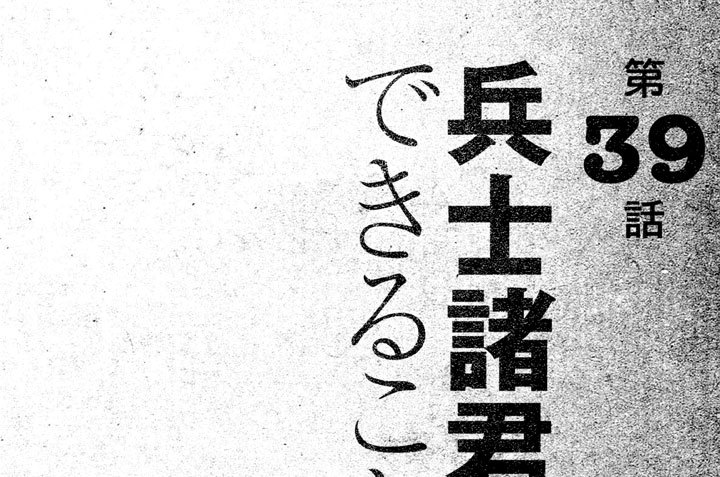 第39話
兵士諸君
できるこ